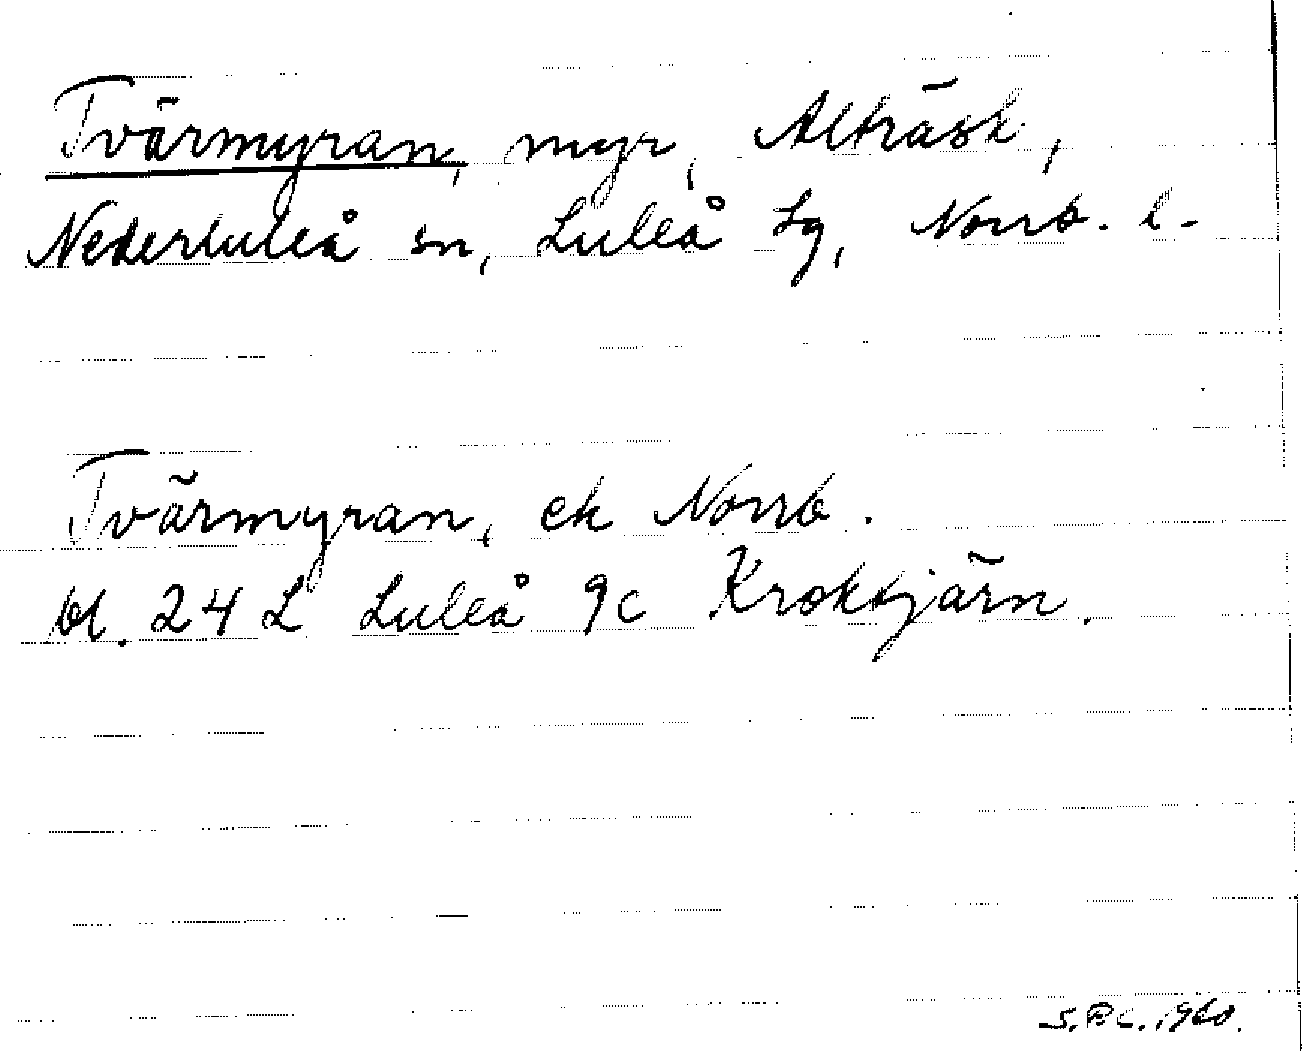 Tvärmyran, myr, Alträsk,
Nederluleå sn, Luleå tg, Norrb. l.
Tvärmyran, ek Norrb.
bl. 24 L Luleå 9c Kroktjärn.
1960.